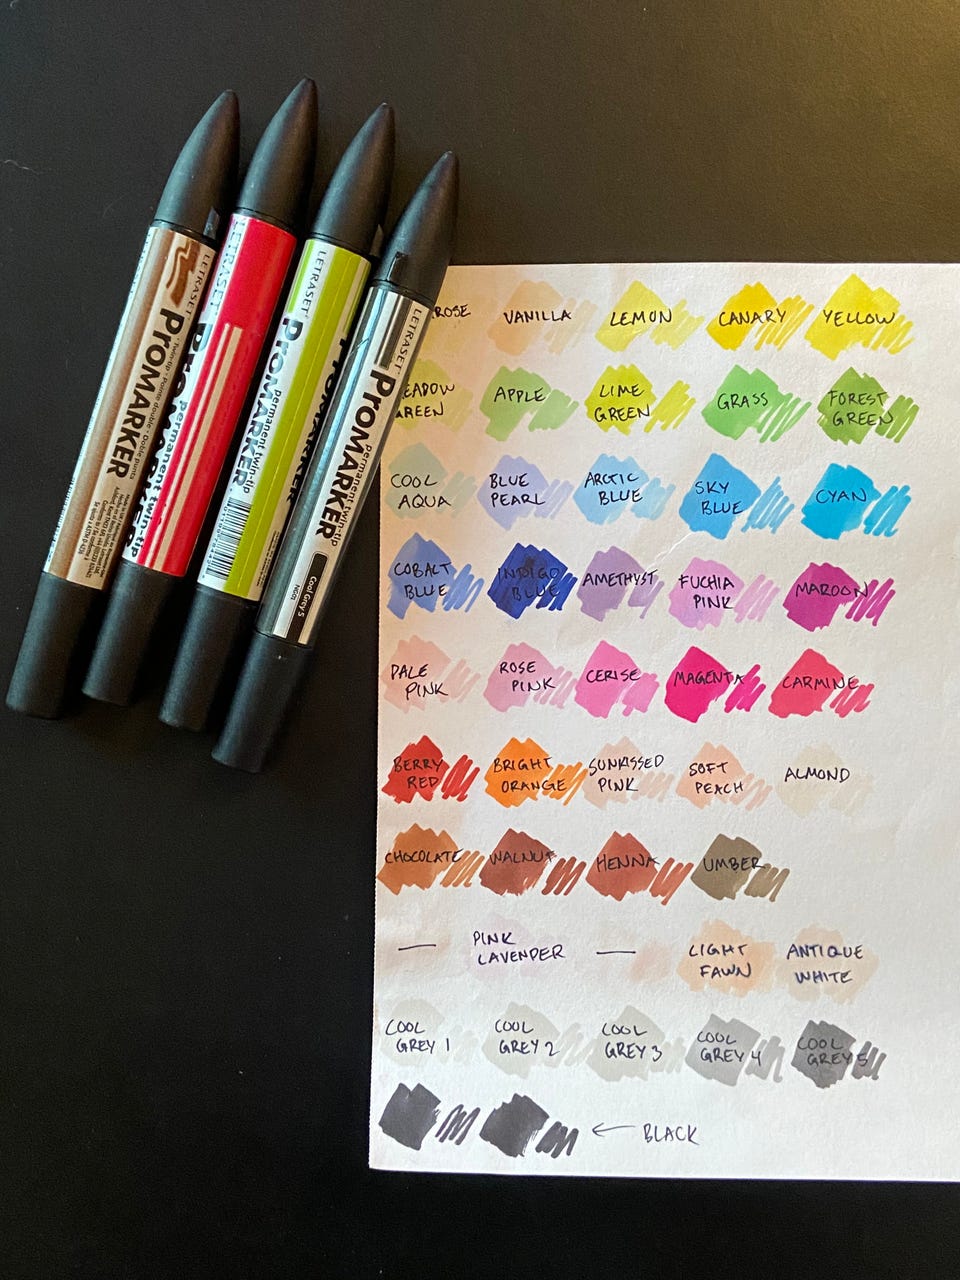 LETRASET
ProMARKER
Twin-tip · Pointe double · Doble punta
LETRASET
permanent twin-tip
LETRASET
ProMARKER
permanent twin-tip
LETRASET
ProMARKER
permanent twin-tip
Cool Grey 5
ROSE VANILLA LEMON CANARY YELLOW
EADOW GREEN APPLE LIME GREEN GRASS FOREST GREEN
COOL AQUA BLUE PEARL ARCTIC BLUE SKY BLUE CYAN
COBALT BLUE INDIGO BLUE AMETHYST FUCHIA PINK MAROON
PALE PINK ROSE PINK CERISE MAGENTA CARMINE
BERRY RED BRIGHT ORANGE SUNKISSED PINK SOFT PEACH ALMOND
CHOCOLATE WALNUT HENNA UMBER
— PINK LAVENDER — LIGHT FAWN ANTIQUE WHITE
COOL GREY 1 COOL GREY 2 COOL GREY 3 COOL GREY 4 COOL GREY 5
← BLACK